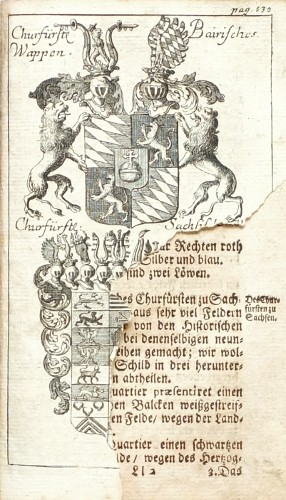 pag. 630
Churfürstl. Bäirisches
Wappen.
Churfürstl. Sächs
zur Rechten roth
Silber und blau.
sind zwei Löwen.
des Churfürsten zu Sach-
aus sehr viel Feldern
von den Historischen
bei denenselbigen neun-
eihen gemacht; wir wol-
Schild in drei herunter-
en abtheilen.
Des Chur-
fürsten zu
Sachsen.
uartier præsentiret einen
en Balcken weißgestreif-
en Felde / wegen der Land-
Quartier einen schwartzen
lde / wegen des Hertzog-
Ll 2 2. Das